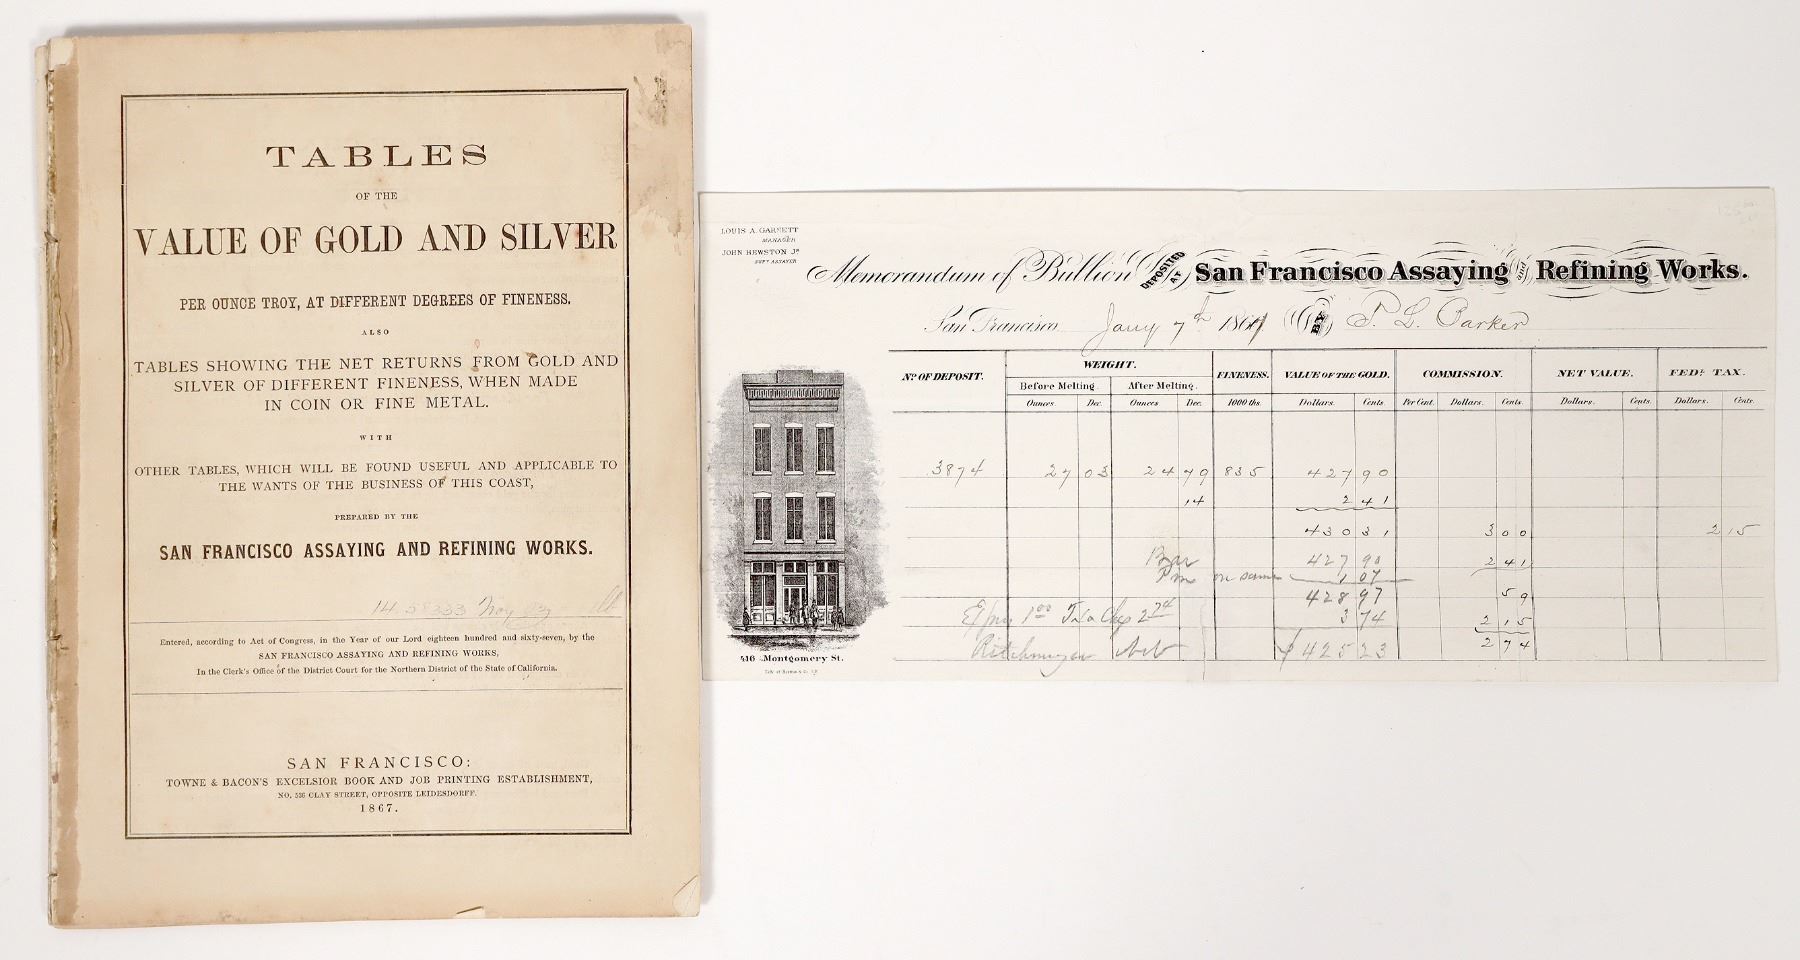 TABLES
OF THE
VALUE OF GOLD AND SILVER
PER OUNCE TROY, AT DIFFERENT DEGREES OF FINENESS.
ALSO
TABLES SHOWING THE NET RETURNS FROM GOLD AND
SILVER OF DIFFERENT FINENESS, WHEN MADE
IN COIN OR FINE METAL.
WITH
OTHER TABLES, WHICH WILL BE FOUND USEFUL AND APPLICABLE TO
THE WANTS OF THE BUSINESS OF THIS COAST,
PREPARED BY THE
SAN FRANCISCO ASSAYING AND REFINING WORKS.
14.58333 Troy oz lb
Entered, according to Act of Congress, in the Year of our Lord eighteen hundred and sixty-seven, by the
SAN FRANCISCO ASSAYING AND REFINING WORKS,
In the Clerk's Office of the District Court for the Northern District of the State of California.
SAN FRANCISCO:
TOWNE & BACON'S EXCELSIOR BOOK AND JOB PRINTING ESTABLISHMENT,
NO. 536 CLAY STREET, OPPOSITE LEIDESDORFF.
1867.
LOUIS A. GARNETT
MANAGER
JOHN HEWSTON Jr
SUPT ASSAYER
Memorandum of Bullion DEPOSITED AT San Francisco Assaying and Refining Works.
San Francisco Jany 7th 186 BY T. L. Barker
No. OF DEPOSIT. WEIGHT. FINENESS. VALUE OF THE GOLD. COMMISSION. NET VALUE. FEDL. TAX.
Before Melting. After Melting.
Ounces. Dec. Ounces. Dec. 1000 ths. Dollars. Cents. Per Cent. Dollars. Cents. Dollars. Cents. Dollars. Cents.
3874 27 03 24 79 835 427 90
14 2 41
430 31 3 00 2 15
Bar 427 90 2 41
Pm on same 1 07
428 97 59
1 00 2 74 3 74 2 15
$425 23 2 74
416 Montgomery St.